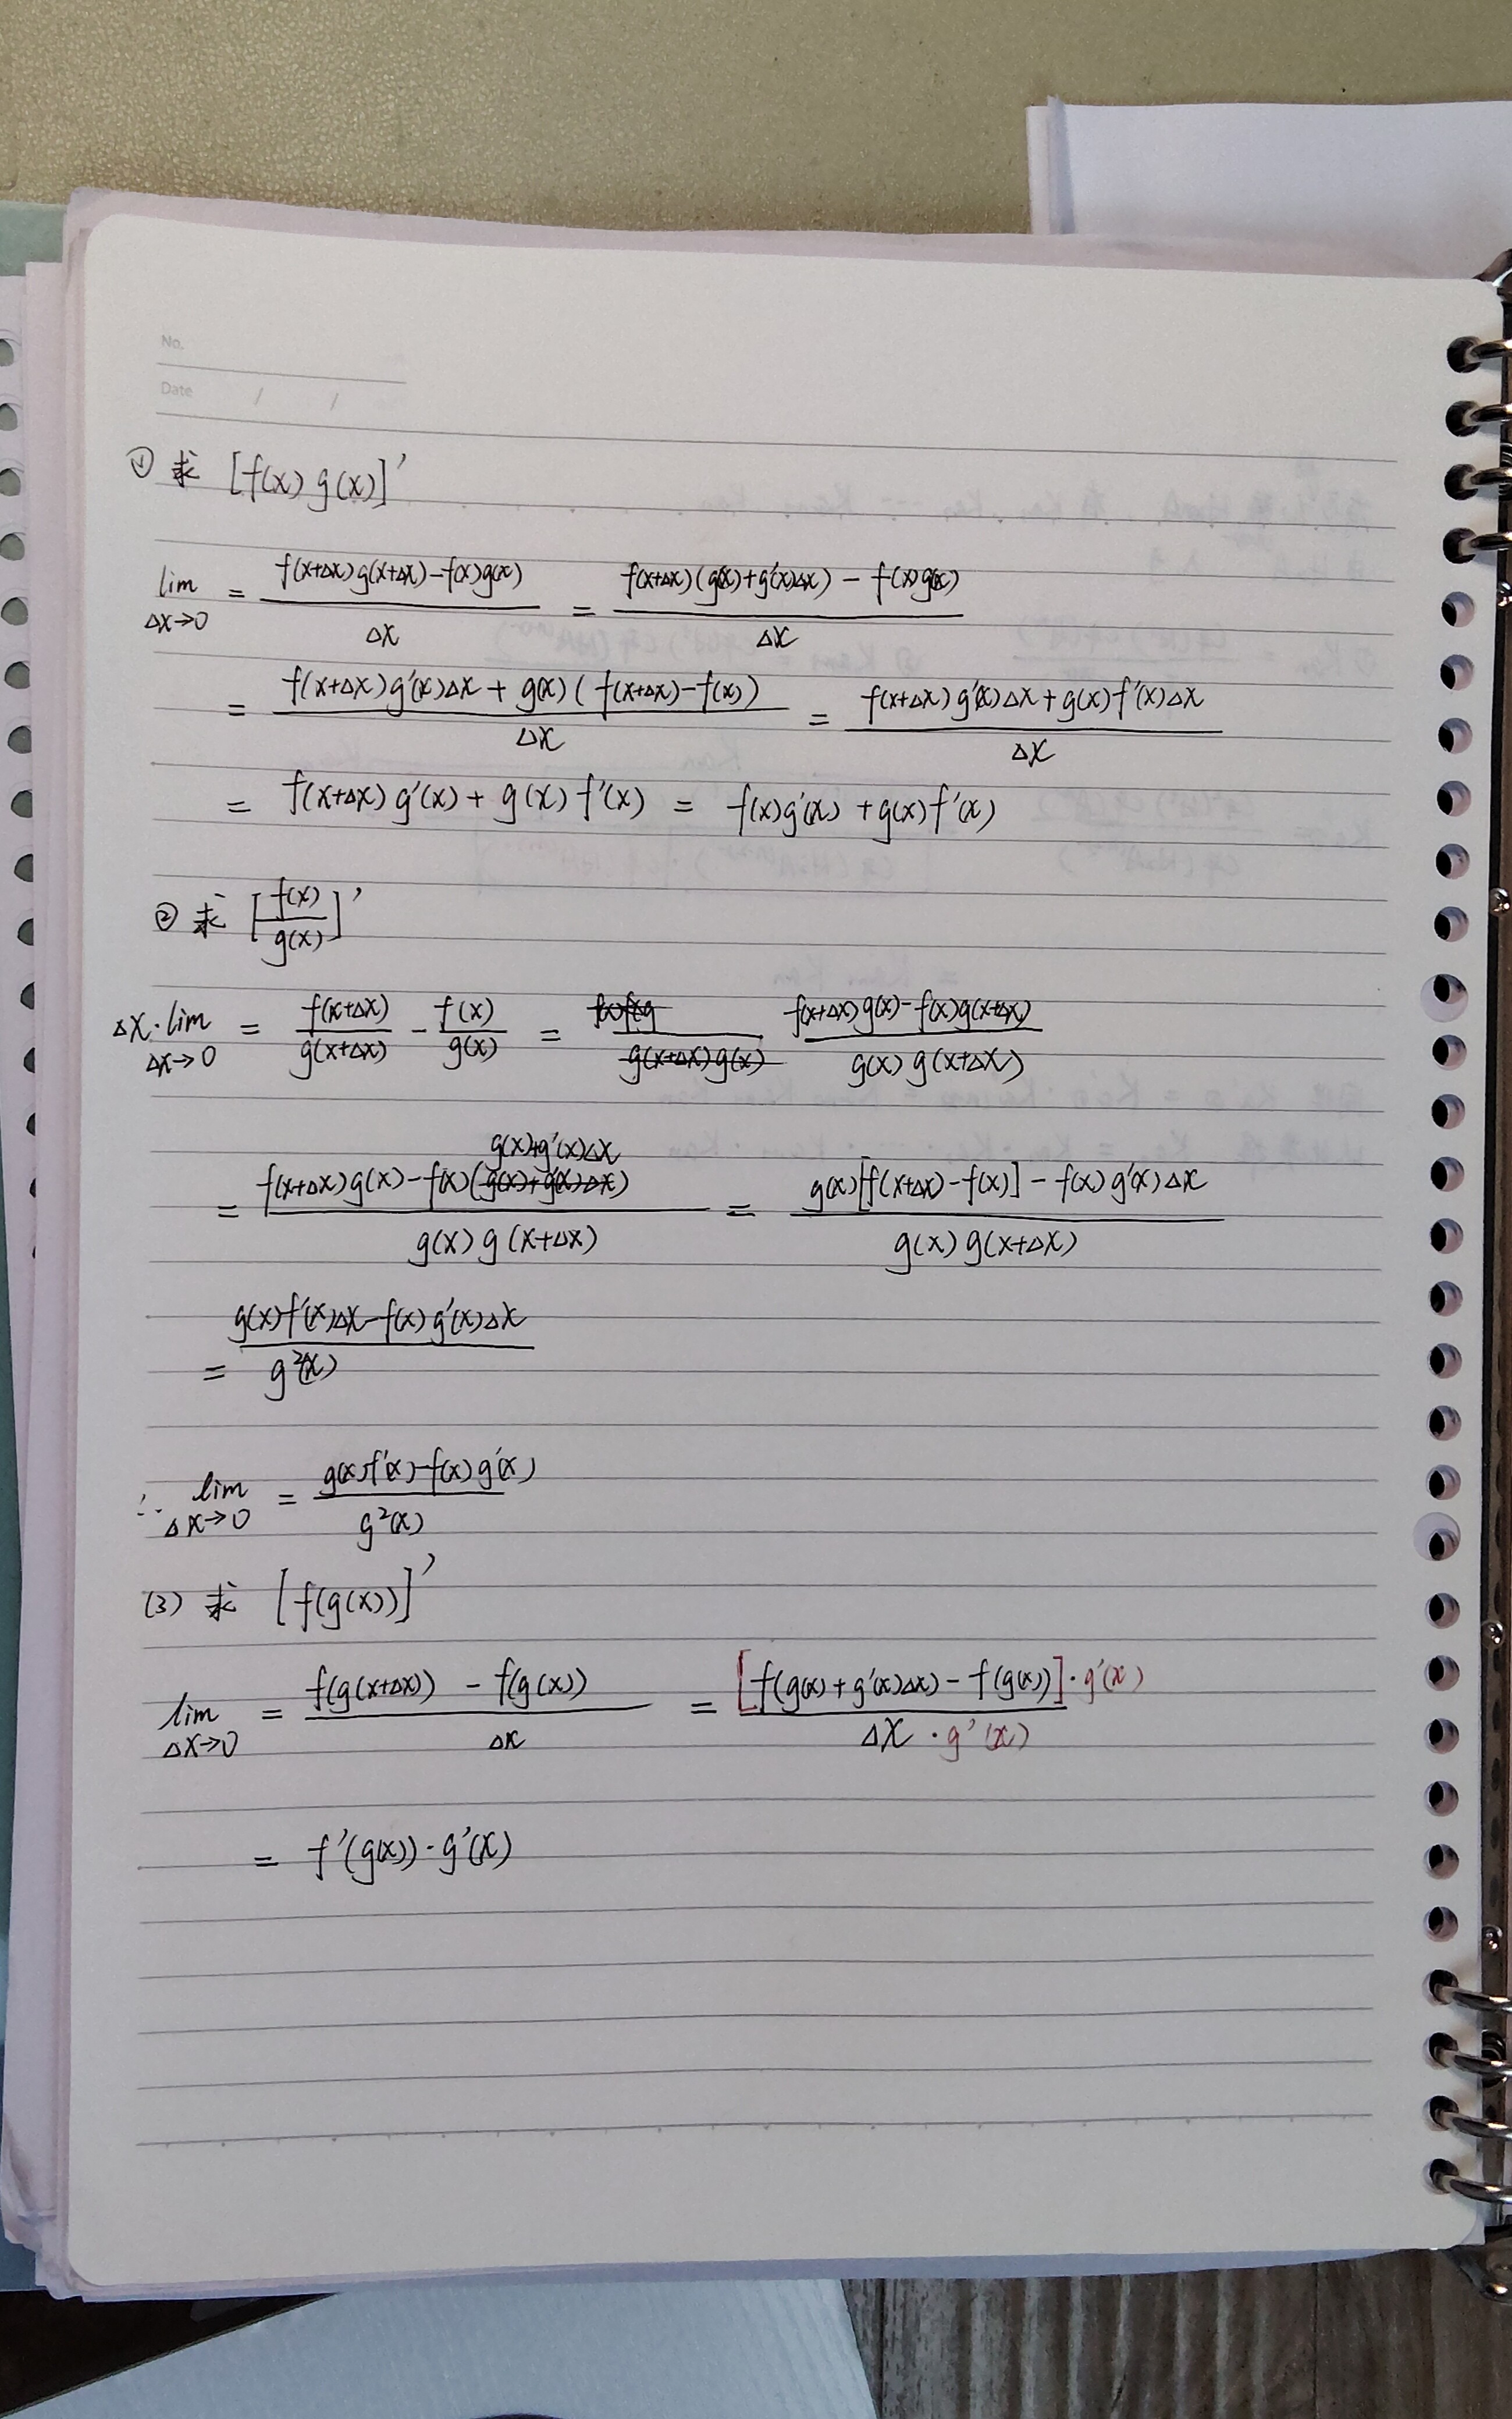 No.
Date / /
① 求 [f(x) g(x)]'
lim Δx→0 = (f(x+Δx)g(x+Δx)-f(x)g(x)) / Δx = (f(x+Δx)(g(x)+g'(x)Δx) - f(x)g(x)) / Δx
= (f(x+Δx)g'(x)Δx + g(x)(f(x+Δx)-f(x))) / Δx = (f(x+Δx)g'(x)Δx+g(x)f'(x)Δx) / Δx
= f(x+Δx)g'(x)+g(x)f'(x) = f(x)g'(x)+g(x)f'(x)
② 求 [f(x)/g(x)]'
Δx·lim Δx→0 = f(x+Δx)/g(x+Δx) - f(x)/g(x) = (f(x+Δx)g(x)-f(x)g(x+Δx)) / g(x)g(x+Δx)
g(x)+g'(x)Δx
= (f(x+Δx)g(x)-f(x)(g(x)+g'(x)Δx)) / g(x)g(x+Δx) = (g(x)[f(x+Δx)-f(x)]-f(x)g'(x)Δx) / g(x)g(x+Δx)
= (g(x)f'(x)Δx-f(x)g'(x)Δx) / g²(x)
∴ lim Δx→0 = (g(x)f'(x)-f(x)g'(x)) / g²(x)
(3) 求 [f(g(x))]'
lim Δx→0 = (f(g(x+Δx)) - f(g(x))) / Δx = [f(g(x)+g'(x)Δx)-f(g(x))]·g'(x) / Δx·g'(x)
= f'(g(x))·g'(x)